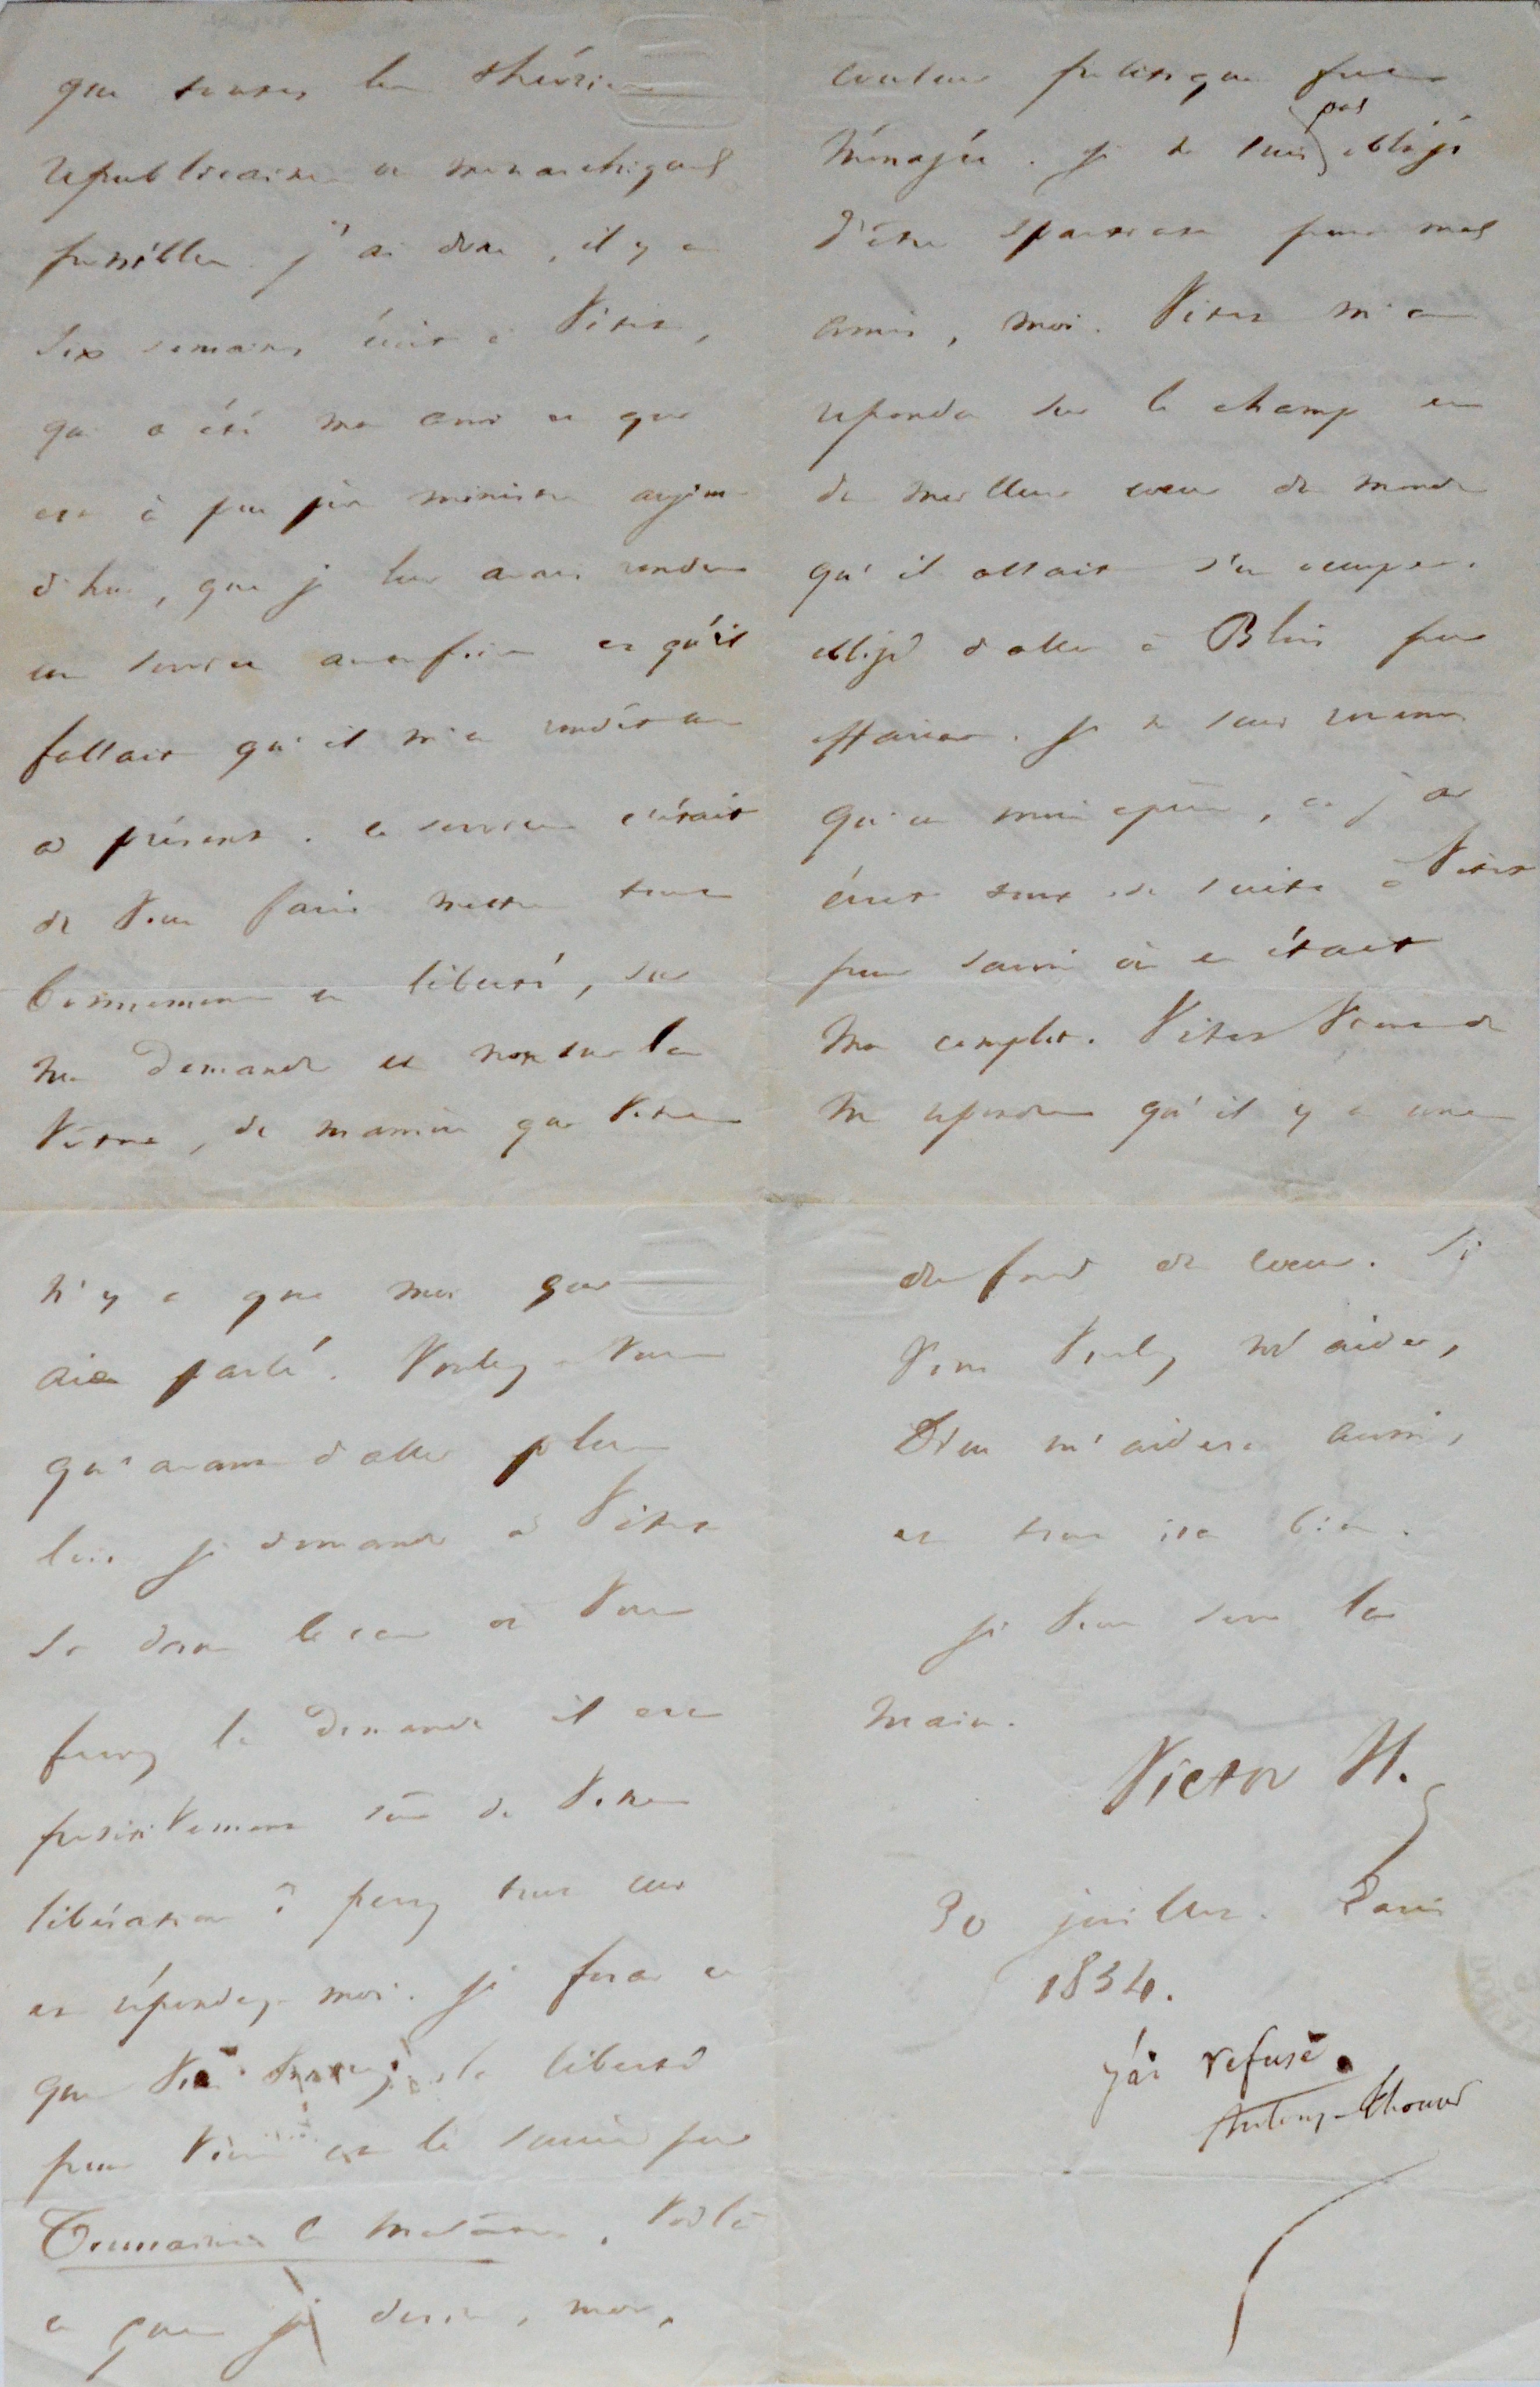 que toutes les théories
républicaines et monarchiques
possibles. j'ai donc, il y a
six semaines écrit à Vitet,
qui a été mon ami et qui
est à peu près ministre aujour-
d'hui, que je lui avais rendu
un service autrefois et qu'il
fallait qu'il m'en rendît un
à présent. ce service c'était
de vous faire mettre tout
bonnement en liberté, sur
ma demande et non sur la
vôtre, de manière que votre
couleur politique fut
ménagée. je ne suis pas obligé
d'être spartiate pour mes
amis, moi. Vitet m'a
répondu sur le champ et
du meilleur cœur du monde
qu'il allait s'en occuper.
obligé d'aller à Blois pour
affaires. je ne suis revenu
qu'un mois après, et j'ai
écrit tout de suite à Vitet
pour savoir où en était
mon complot. Vitet vient de
me répondre qu'il y a une
n'y a que moi qui
aie parlé. Voulez-vous
qu'avant d'aller plus
loin je demande à Vitet
si dans le cas où vous
feriez la demande il est
positivement sûr de votre
libération ? pesez tout cela
et répondez-moi. je ferai ce
que vous voudrez. la liberté
pour vous et le
. Voilà
ce que je désire, moi,
du fond du cœur. Si
vous voulez m'aider,
Dieu m'aidera aussi,
et tout ira bien.
je vous serre la
main.
Victor H.
30 juillet. Paris
1834.
J'ai refusé.
Antony Thouret